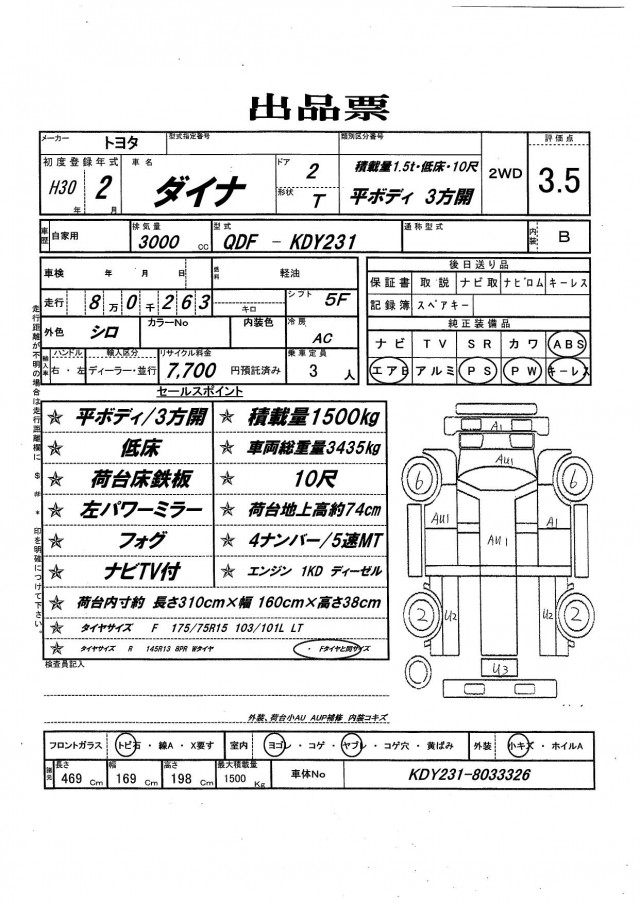 出品票
メーカー トヨタ 型式指定番号 類別区分番号 2WD 評価点 3.5
初度登録年式 H30年 2月 車名 ダイナ ドア 2 形状 T 積載量1.5t・低床・10尺 平ボディ 3方開
車歴 自家用 排気量 3000 CC 型式 QDF - KDY231 通称型式 内装 B
車検 年 月 日 燃料 軽油
走行 8万0千263 キロ シフト 5F
外色 シロ カラーNo 内装色 冷房 AC
輸入車 ハンドル 右・左 輸入区分 ディーラー・並行 リサイクル料金 7,700 円預託済み 乗車定員 3 人
後日送り品
保証書 取説 ナビ取 ナビロム キーレス
記録簿 スペアキー
純正装備品
ナビ TV SR カワ ABS
エアB アルミ PS PW キーレス
走行距離が不明の場合は走行距離欄に $ # * 印を明確につけて下さい。
セールスポイント
☆ 平ボディ/3方開 ☆ 積載量1500kg
☆ 低床 ☆ 車両総重量3435kg
☆ 荷台床鉄板 ☆ 10尺
☆ 左パワーミラー ☆ 荷台地上高約74cm
☆ フォグ ☆ 4ナンバー/5速MT
☆ ナビTV付 ☆ エンジン 1KD ディーゼル
☆ 荷台内寸約 長さ310cm×幅 160cm×高さ38cm
☆ タイヤサイズ F 175/75R15 103/101L LT
☆ タイヤサイズ R 145R13 8PR Wタイヤ ・ Fタイヤと同サイズ
A1
AU1
6
6
AU1
A1
AU1
2
U2
U2
2
U3
検査員記入
外装、荷台小AU AUP補修 内装コキズ
フロントガラス トビ石・線A・X要す 室内 ヨゴレ・コゲ・ヤブレ・コゲ穴・黄ばみ 外装 小キズ・ホイルA
諸元 長さ 469 Cm 幅 169 Cm 高さ 198 Cm 最大積載量 1500 Kg 車体No KDY231-8033326